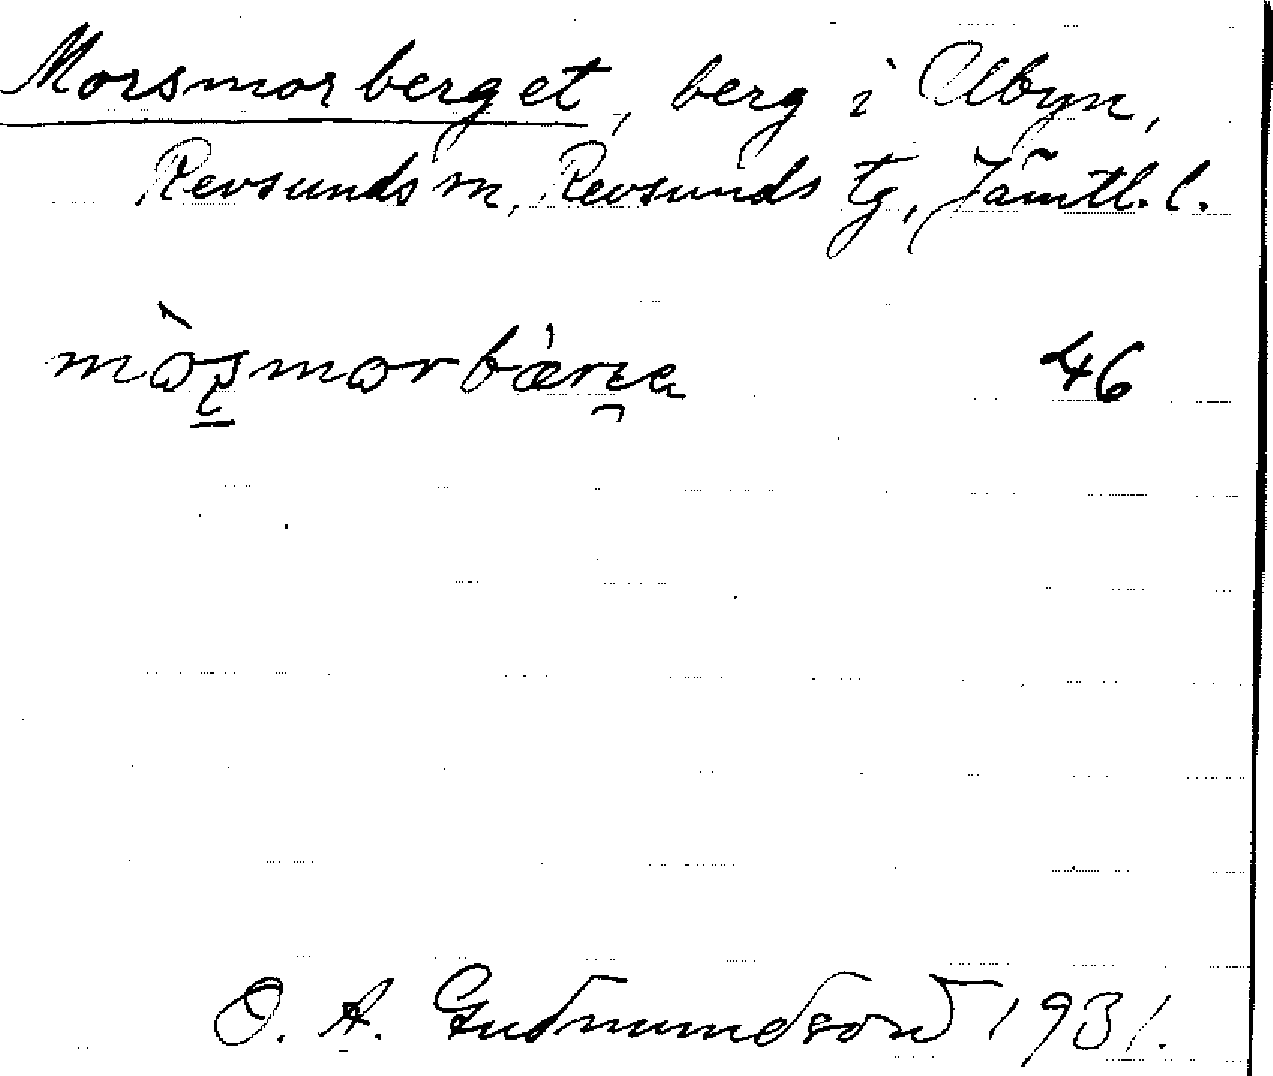 Morsmorberget, berg i Albyn,
Revsunds sn, Revsunds tg, Jämtl. l.
46
O. A. Gudmundson 1931.